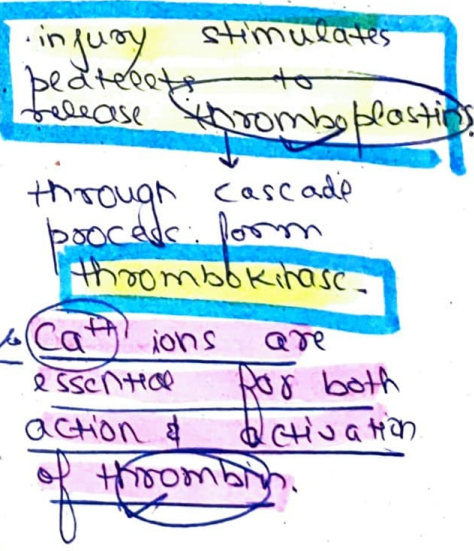 injury stimulates
pedtelets to
release thromboplastins
through cascade
process: form
thrombokinase.
Ca++ ions are
essential for both
action & activation
of thrombin.